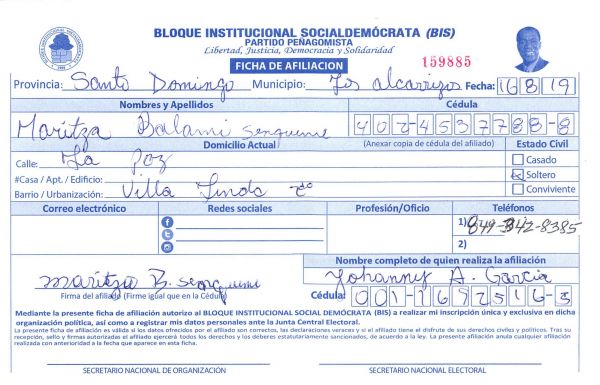 BLOQUE INSTITUCIONAL SOCIALDEMÓCRATA (BIS)
PARTIDO PEÑAGOMISTA
Libertad, Justicia, Democracia y Solidaridad
FICHA DE AFILIACION
159885
Provincia: Santo Domingo Municipio: Los alcarrizos Fecha: 16 8 19
Nombres y Apellidos Cédula
Maritza Balami 402-4537788-8
Domicilio Actual (Anexar copia de cédula del afiliado) Estado Civil
Calle: La Paz Casado
#Casa / Apt. / Edificio: Soltero
Barrio / Urbanización: Villa Linda Conviviente
Correo electrónico Redes sociales Profesión/Oficio Teléfonos
1) 849-342-8385
2)
Nombre completo de quien realiza la afiliación
Maritza B. Yohanny A. Garcia
Firma del afiliado (Firme igual que en la Cédula) Cédula: 001-1692516-3
Mediante la presente ficha de afiliación autorizo al BLOQUE INSTITUCIONAL SOCIAL DEMÓCRATA (BIS) a realizar mi inscripción única y exclusiva en dicha
organización política, así como a registrar mis datos personales ante la Junta Central Electoral.
La presente ficha de afiliación es válida si los datos ofrecidos por el afiliado son correctos, las declaraciones veraces y si el afiliado tiene el disfrute de sus derechos civiles y políticos. Tras su
recepción, sello y firmas autorizadas el afiliado ejercerá todos los derechos y los deberes estatutariamente sancionados, de acuerdo a la ley. La presente afiliación anula cualquier afiliación
realizada anterioridad a la fecha que aparece en esta ficha.
SECRETARIO NACIONAL DE ORGANIZACIÓN SECRETARIO NACIONAL ELECTORAL